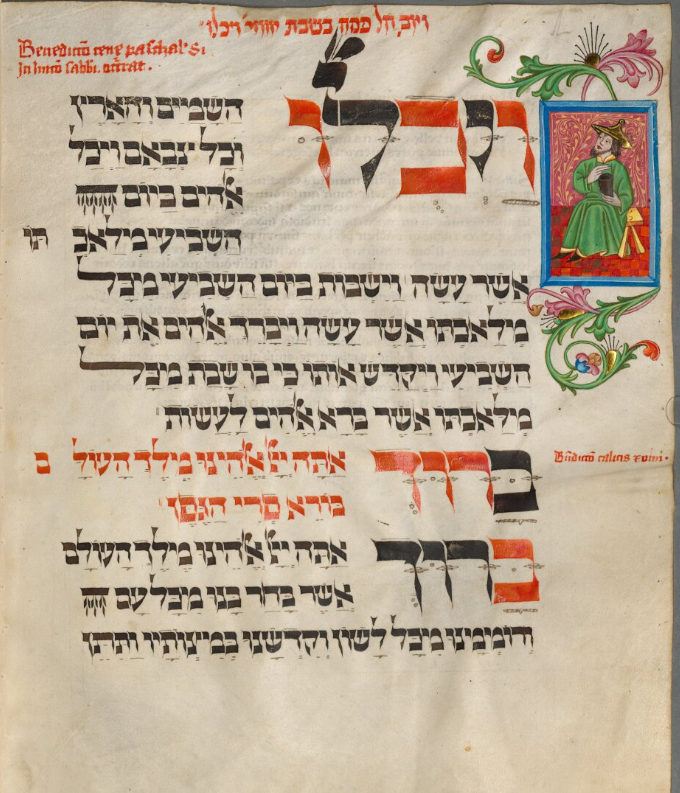 חל פסח בשבת יאמר ויכלו
Benedictō cene paschal' Si
In
ויכלו השמים והארץ
וכל צבאם ויכל
אלהים ביום
השביעי מלאכ תו
אשר עשה וישבות ביום השביעי מכל
מלאכתו אשר עשה ויברך אלהים את יום
השביעי ויקדש אותו כי בו שבת מכל
מלאכתו אשר ברא אלהים לעשות
ברוך אתה יי אלהינו מלך העול ם
בורא פרי הגפן
Bndictō calicis
ברוך אתה יי אלהינו מלך העולם
אשר בחר בנו מכל עם
ורוממנו מכל לשון וקדשנו במצותיו ותתן